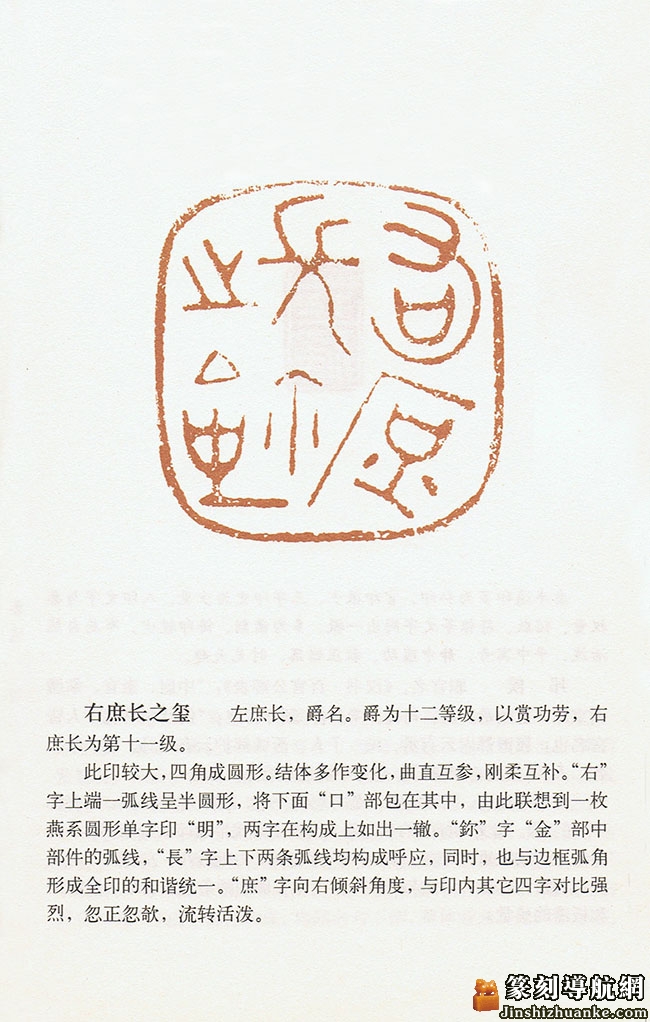 右庶长之玺　　左庶长，爵名。爵为十二等级，以赏功劳，右
庶长为第十一级。
此印较大，四角成圆形。结体多作变化，曲直互参，刚柔互补。“右”
字上端一弧线呈半圆形，将下面“口”部包在其中，由此联想到一枚
燕系圆形单字印“明”，两字在构成上如出一辙。“鉨”字“金”部中
部件的弧线，“長”字上下两条弧线均构成呼应，同时，也与边框弧角
形成全印的和谐统一。“庶”字向右倾斜角度，与印内其它四字对比强
烈，忽正忽欹，流转活泼。
篆刻導航網
Jinshizhuanke.com